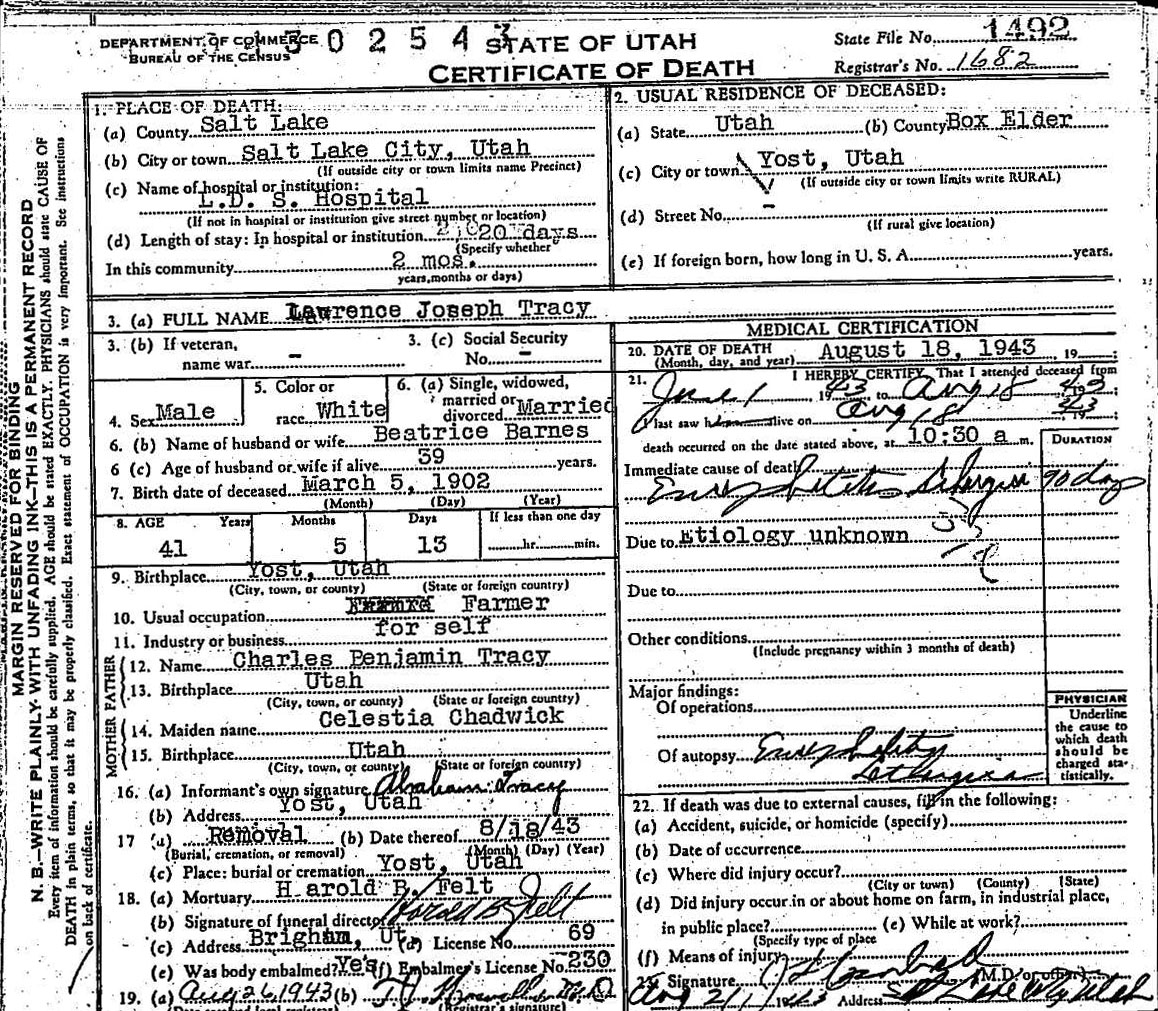 DEPARTMENT OF COMMERCE
BUREAU OF THE CENSUS
302543
STATE OF UTAH
CERTIFICATE OF DEATH
State File No. 1492
Registrar's No. 1682
MARGIN RESERVED FOR BINDING
N. B.—WRITE PLAINLY WITH UNFADING INK—THIS IS A PERMANENT RECORD
Every item of information should be carefully supplied. AGE should be stated EXACTLY. PHYSICIANS should state CAUSE OF
DEATH in plain terms, so that it may be properly classified. Exact statement of OCCUPATION is very important. See instructions
on back of certificate.
1. PLACE OF DEATH:
(a) County Salt Lake
(b) City or town Salt Lake City, Utah
(If outside city or town limits name Precinct)
(c) Name of hospital or institution:
L.D. S. Hospital
(If not in hospital or institution give street number or location)
(d) Length of stay: In hospital or institution 20 days
(Specify whether
In this community 2 mos.
years, months or days)
2. USUAL RESIDENCE OF DECEASED:
(a) State Utah (b) County Box Elder
(c) City or town Yost, Utah
(If outside city or town limits write RURAL)
(d) Street No. -
(If rural give location)
(e) If foreign born, how long in U. S. A. years.
3. (a) FULL NAME Lawrence Joseph Tracy
3. (b) If veteran,
name war -
3. (c) Social Security
No. -
4. Sex Male
5. Color or
race White
6. (a) Single, widowed,
married or
divorced Married
6. (b) Name of husband or wife Beatrice Barnes
6 (c) Age of husband or wife if alive 39 years.
7. Birth date of deceased March 5, 1902
(Month) (Day) (Year)
8. AGE Years Months Days If less than one day
41 5 13 hr. min.
9. Birthplace Yost, Utah
(City, town, or county) (State or foreign country)
10. Usual occupation Farmer
11. Industry or business for self
FATHER
12. Name Charles Benjamin Tracy
13. Birthplace Utah
(City, town, or county) (State or foreign country)
MOTHER
14. Maiden name Celestia Chadwick
15. Birthplace Utah
(City, town, or county) (State or foreign country)
16. (a) Informant's own signature Abraham Tracy
(b) Address Yost, Utah
17 (a) Removal (b) Date thereof 8/18/43
(Burial, cremation, or removal) (Month) (Day) (Year)
(c) Place: burial or cremation Yost, Utah
18. (a) Mortuary Harold B. Felt
(b) Signature of funeral director Harold B Felt
(c) Address Brigham, Ut. (d) License No. 69
(e) Was body embalmed? Yes (f) Embalmer's License No. 230
19. (a) Aug 26, 1943 (b) M.D
(Registrar's signature)
MEDICAL CERTIFICATION
20. DATE OF DEATH August 18, 1943 19
(Month, day, and year)
21. I HEREBY CERTIFY, That I attended deceased from
June 1 1943 to Aug 18 1943
I last saw him alive on Aug 18 1943
death occurred on the date stated above, at 10:30 a m.
DURATION
Immediate cause of death
Encephalitis Lethargica 90 days
Due to Etiology unknown
Due to
Other conditions
(Include pregnancy within 3 months of death)
Major findings:
Of operations
Of autopsy Encephalitis
Lethargica
PHYSICIAN
Underline
the cause to
which death
should be
charged sta-
tistically.
22. If death was due to external causes, fill in the following:
(a) Accident, suicide, or homicide (specify)
(b) Date of occurrence
(c) Where did injury occur?
(City or town) (County) (State)
(d) Did injury occur in or about home on farm, in industrial place,
in public place? (e) While at work?
(Specify type of place
(f) Means of injury
23. Signature (M.D. or other)
Aug 21, 1943 Address Salt Lake City Utah